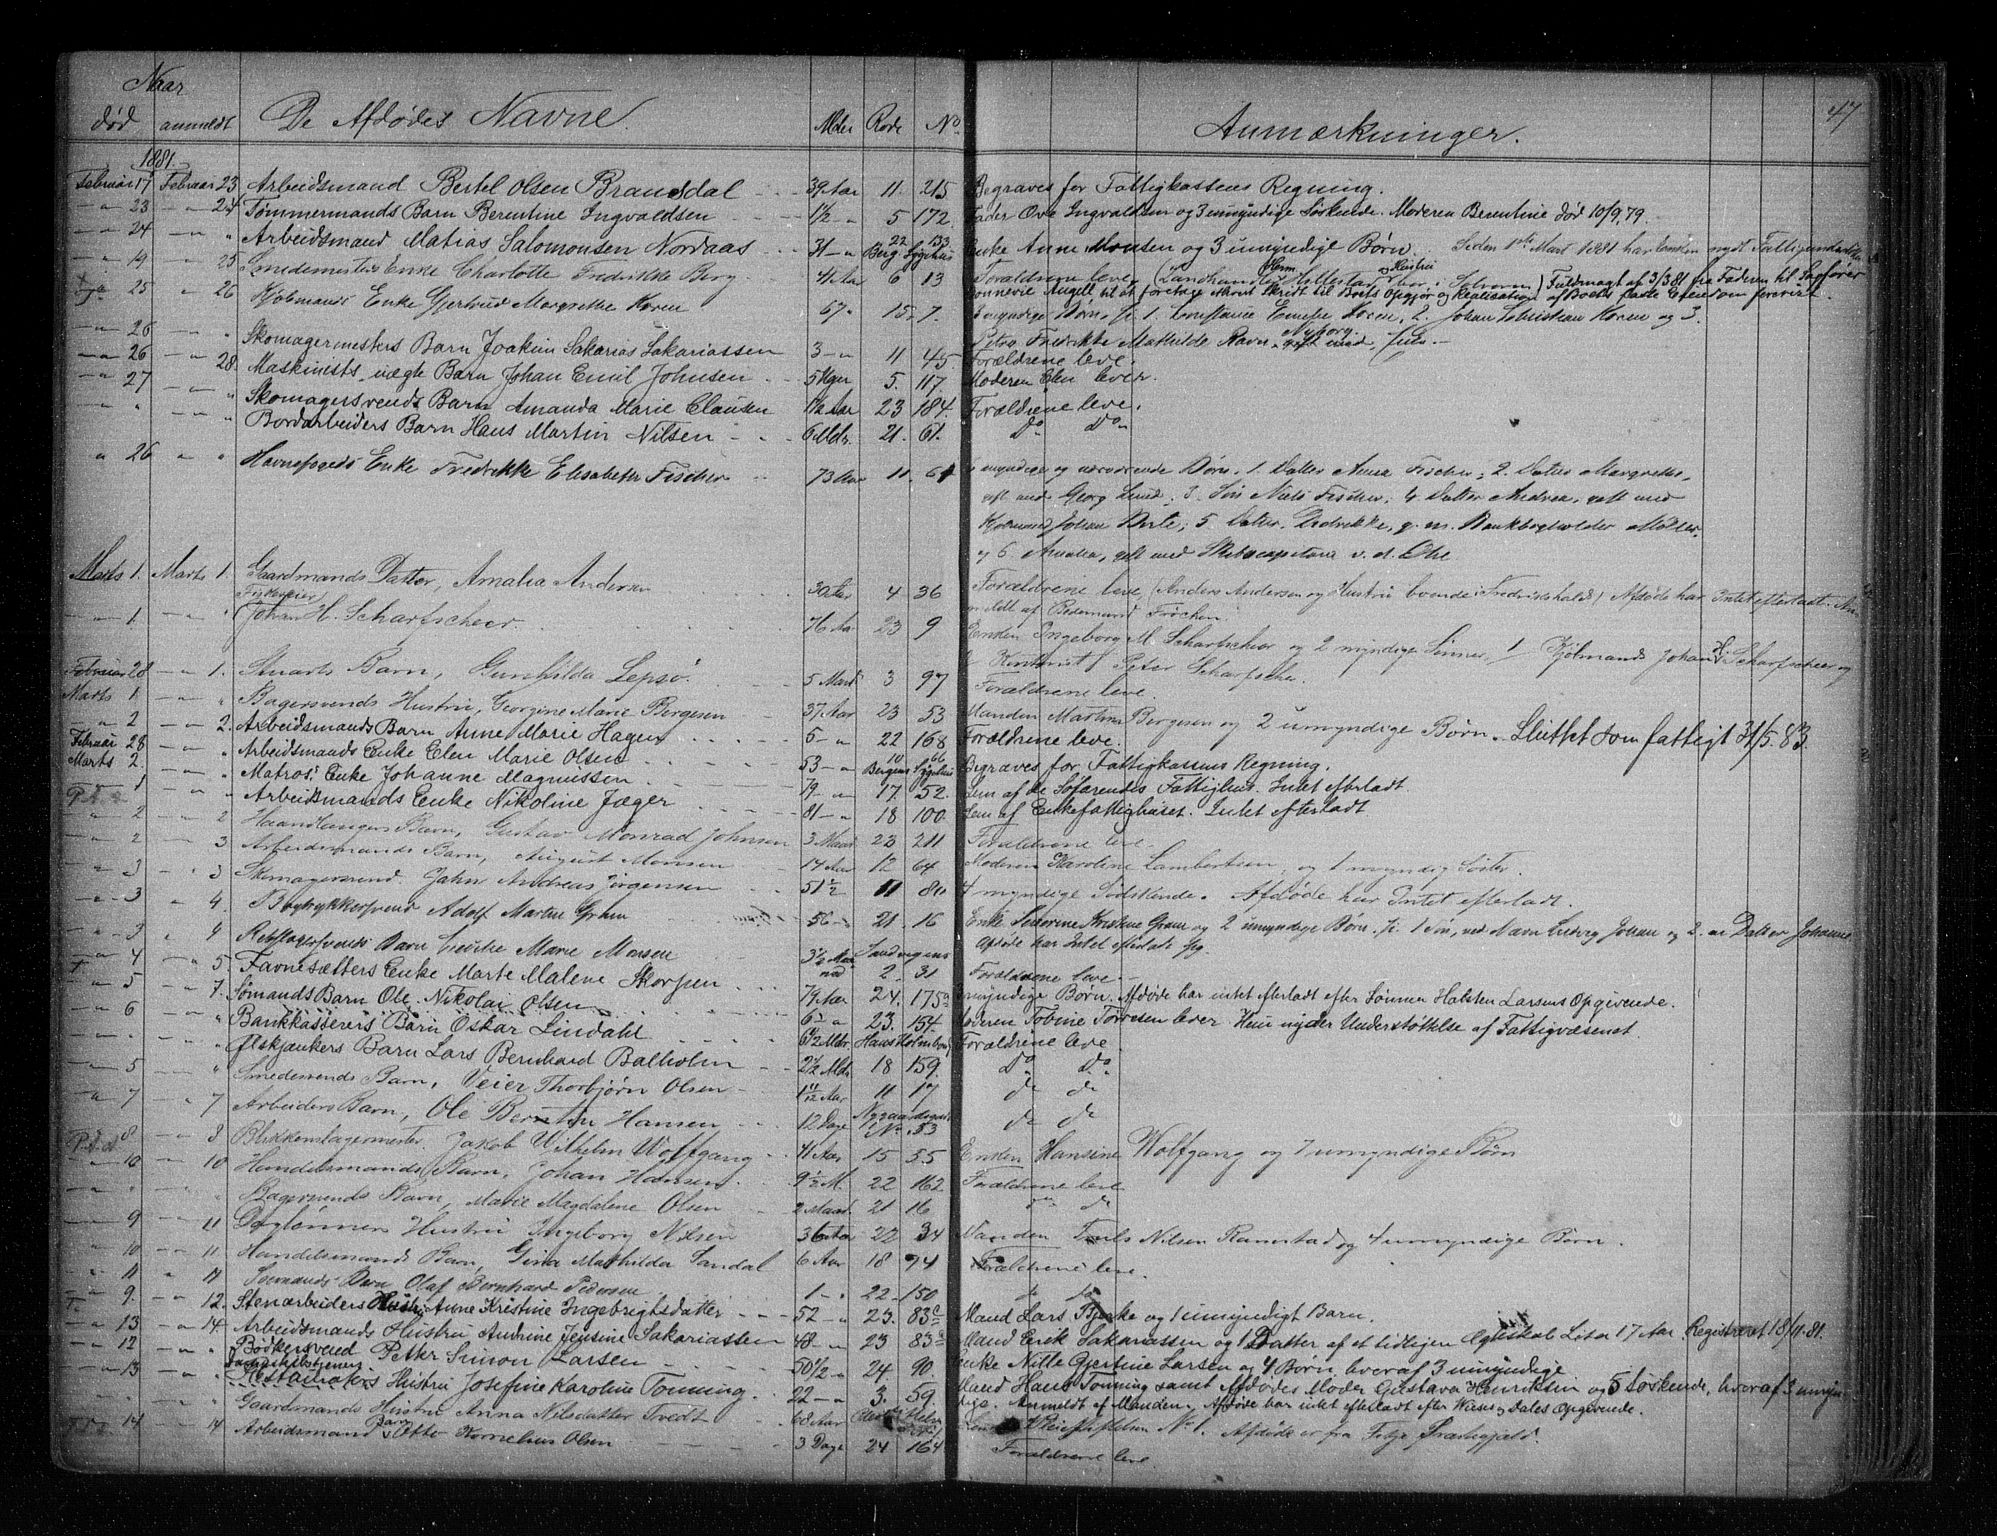 47
Naar
død anmeldt De Afdødes Navne. Alder Rode No Anmærkninger.
1881.
Februar 17 Februar 23 Arbeidsmand Bertel Olsen Bransdal 39 Aar 11. 215 Begraves for Fattigkassens Regning.
23 24 Tømmermands Barn Berentine Ingvaldsen 1 1/2 5 172. Fader Ove Ingvaldsen og 3 umyndige Søskende. Moderen Berentine død 10/9.79.
24 " Arbeidsmand Matias Salomonsen Nordaas 31 22 153 Berg. Sygehus Enke Anne Monsen og 3 umyndige Børn. Siden 1ste Mart 1881 har Enken nydt
19 25 Smedemesters Enke Charlotte Fredrikke Berg 41 Aar 6 13 Forældrene leve Fuldmagt af 3/3 81 fra Faderen til Sagfører
25 26 Kjøbmands Enke Gjertrud Margrethe Koren 67 15. 7. til at foretage Skridt til Boets Opgjør og Realisation af Boets faste Eiendom
Johan Christian Koren og 3.
26 " Skomagermesters Barn Joakim Sakarias Sakariassen 3 11 45 Forældrene leve.
26 28. Maskinists uægte Barn Johan Emil Johnsen 5 Uger 5. 117. Moderen Elen lever.
27 " Skomagersvends Barn Amanda Marie Clausen 1 1/2 Aar 23 184. Forældrene leve.
" " Bordarbeiders Barn Hans Martin Nilsen 6 Mdr. 21. 61. Do Do
26 " Havnefogeds Enke Fredrikke Elisabeth Fischer 73 Aar 11. 61 myndige og nærværende Børn. 1. Datter Anna Fischer; 2. Datter Margrethe,
gift med Georg Lund; 3. Søn Niels Fischer; 4 Datter Andrea, gift med
Kjøbmand Johan Berle; 5. Datter Didrikke, g. m. Bankbogholder Møller,
og 6. Amalia, gift med Skibscapitain v. d. Ohe
Marts 1. Marts 1. Gaardmands Datter, Amalia Andersen 30 Aar 4 36 Forældrene leve (Anders Andersen og Hustru boende i Fredrikshald) Afdøde har Intet efterladt.
1 " Johan H. Scharfscheer 76 Aar 23 9 Enken Ingeborg M. Scharfscheer og 2 myndige Sønner, 1 Kjøbmand Johan H. Scharfscheer og
2 Peter Scharfscheer.
Februar 28 1. Stuarts Barn, Gunhilda Lepsø 5 Maad 3 97 Forældrene leve.
Marts 1. " Bagersvends Hustru, Georgine Marie Børgesen 37 Aar 23 53 Manden Martin Børgesen og 2 umyndige Børn. Sluttet som fattigt 31/5.83.
2 2. Arbeidsmands Barn Anne Marie Hagen 5 22 168 Forældrene leve.
Februar 28 " Arbeidsmands Enke Elen Marie Olsen 53 10 66 Bergens Sygehus Begraves for Fattigkassens Regning.
Marts 2. " Matros' Enke Johanne Magnussen 79 17. 52. Lem af de Søfarendes Fattighus. Intet efterladt
1 " Arbeidsmands Enke Nikoline Jæger 81 18 100 Lem af Enkefattighuset. Intet efterladt
2 2 Haandlangers Barn, Gustav Monrad Johnsen 3 Maad 23 211 Forældrene leve.
2 3 Arbeidsmands Barn, August Monsen 14 Aar 12 64 Moderen Karoline Lambertsen, og 1 myndig Søster.
3 3 Skomagersvend. Jahn Andreas Jørgensen 51 1/2 11 80 4 myndige Sødskende. Afdøde har Intet efterladt.
3 4. Bogtrykkersvend Adolf Martin Gram 56 21. 16 Enke Severine Kristine Gram og 2 umyndige Børn. 1 Søn, ved Navn Ludvig Johan og 2. en Datter Johanne
Afdøde har Intet efterladt sig
3 4 Rebslagersvends Barn Marie Monsen 3 1/2 Maaned Sandvigens 2. 31 Forældrene leve.
4 5. Favnesætters Enke Marte Malene Skorpen 79 Aar 24. 175 umyndige Børn. Afdøde har intet efterladt efter Sønnen Halsten Larsens Opgivende.
5 7. Sømands Barn Ole Nikolai Olsen 6 23. 154. Moderen Tobine Torresen lever Hun nyder Understøttelse af Fattigvæsenet
6 " Bankkasserers Barn Oskar Lindahl 6 1/2 Mdr. Forældrene leve.
" Ølskjænkers Barn Lars Bernhard Balholm 2 1/2 Mdr 18 159. Do Do
5 " Smedesvends Barn, Veier Thorbjørn Olsen 1 11/12 Aar 11 17 do do
7 7 Arbeiders Barn, Ole Berntin Hansen 12 Dage Nygaardsgaden No. 53 do do
8 8 Blikkenslagermester Jakob Wilhelm Wolfgang 41 Aar 15 55 Enken Hansine Wolfgang og 7 umyndige Børn
10 10 Handelsmands Barn, Johan Hansen 9 1/2 M. 22 162 Forældrene leve
" " Bagersvends Barn, Marie Magdalene Olsen 2 Maad 21 16 do do
9 11 Hustru Ingeborg Nilsen 36 Aar 22 34 Manden Nilsen Ramstad og 4 umyndige Børn.
10 11 Handelsmands Barn, Gina Mathilda Sandal 6 Aar 18 94 Forældrene leve.
11 11 Sømands Barn Olaf Bernhard Pedersen 1 22 150 do do
9 12. Stenarbeiders Hustru Anne Kristine Ingebrigtsdatter 52 23. 83c Mand Lars Bjerke og 1 umyndigt Barn.
13 14. Arbeidsmands Hustru Andrine Jensine Sakariassen 48 23 83 Mand Erik Sakariassen og 1 Datter af et tidligere Ægteskab Lisa 17 Aar. Registreret 18/11.81.
12 " Bødkersvend Petter Simon Larsen 50 1/2 24. 90. Enke Nille Gjertine Larsen og 4 Børn, hvoraf 3 umyndige
13 " Dampskibstjeners Hustru Josefine Karoline Tonning. 22 3. 59. Mand Hans Tonning samt Afdødes Moder Gustava Henriksen og 5 Søskende, hvoraf 3 umyn
dige. Anmeldt af Manden. Afdøde har intet efterladt efter Opgivende.
" Gaardmands Hustru Anna Nilsdatter Tredt 60 Aar No 1. Afdøde er fra
14 14 Arbeidsmands Barn Otto Kornelius Olsen 3 Dage 24 164 Forældrene leve.